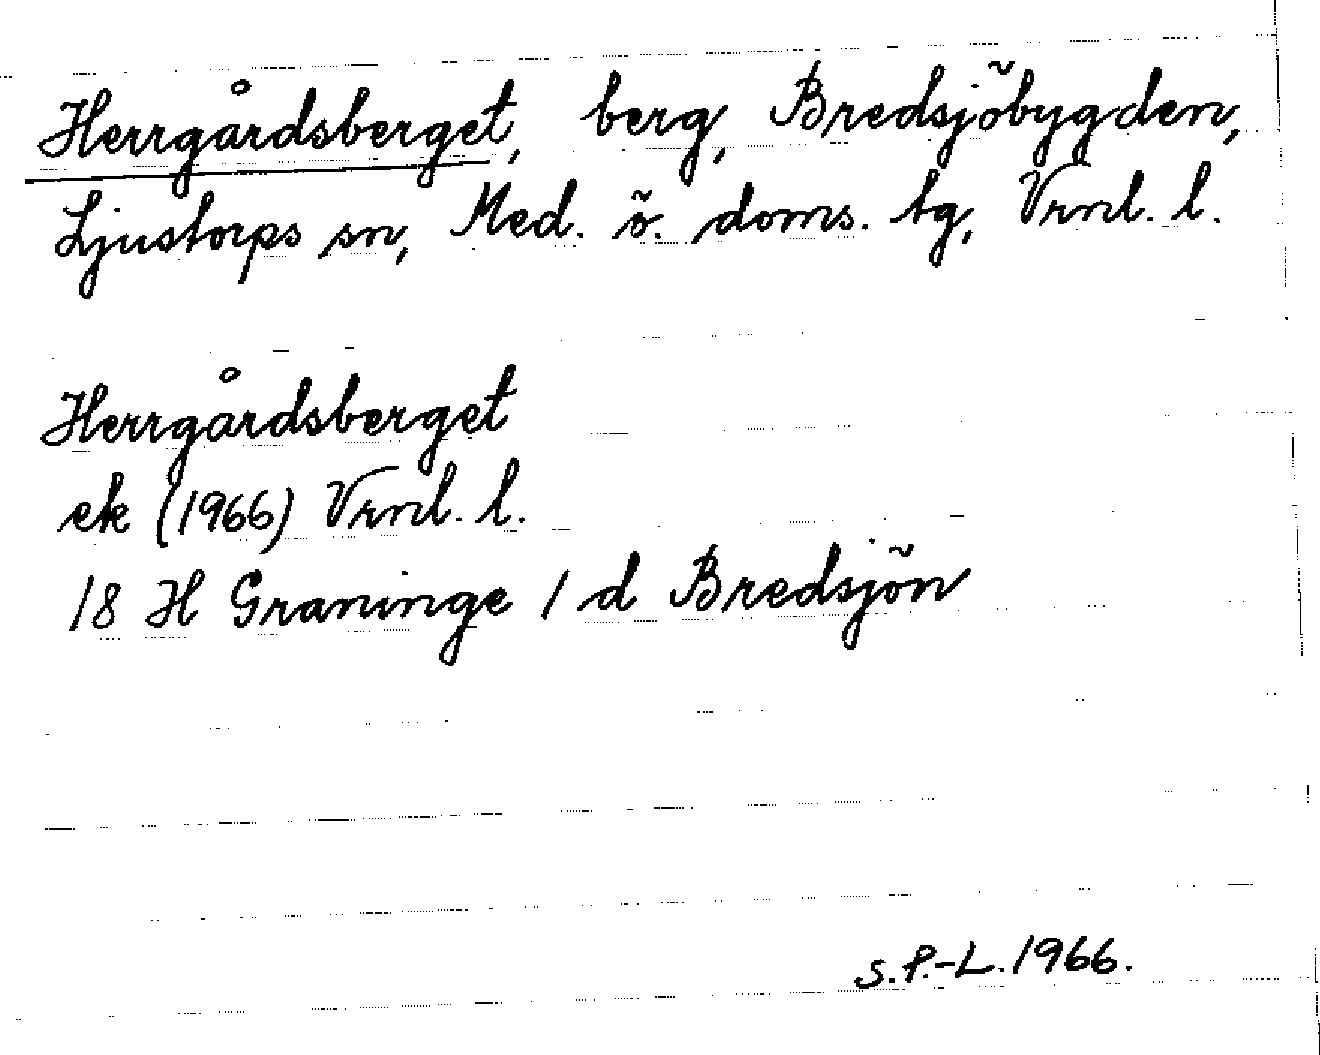 Herrgårdsberget, berg, Bredsjöbygden,
Ljustorps sn, Med. ö. doms. tg, Vrnl. l.
Herrgårdsberget
ek (1966) Vrnl. l.
18 H Graninge 1 d Bredsjön
S.P.-L. 1966.